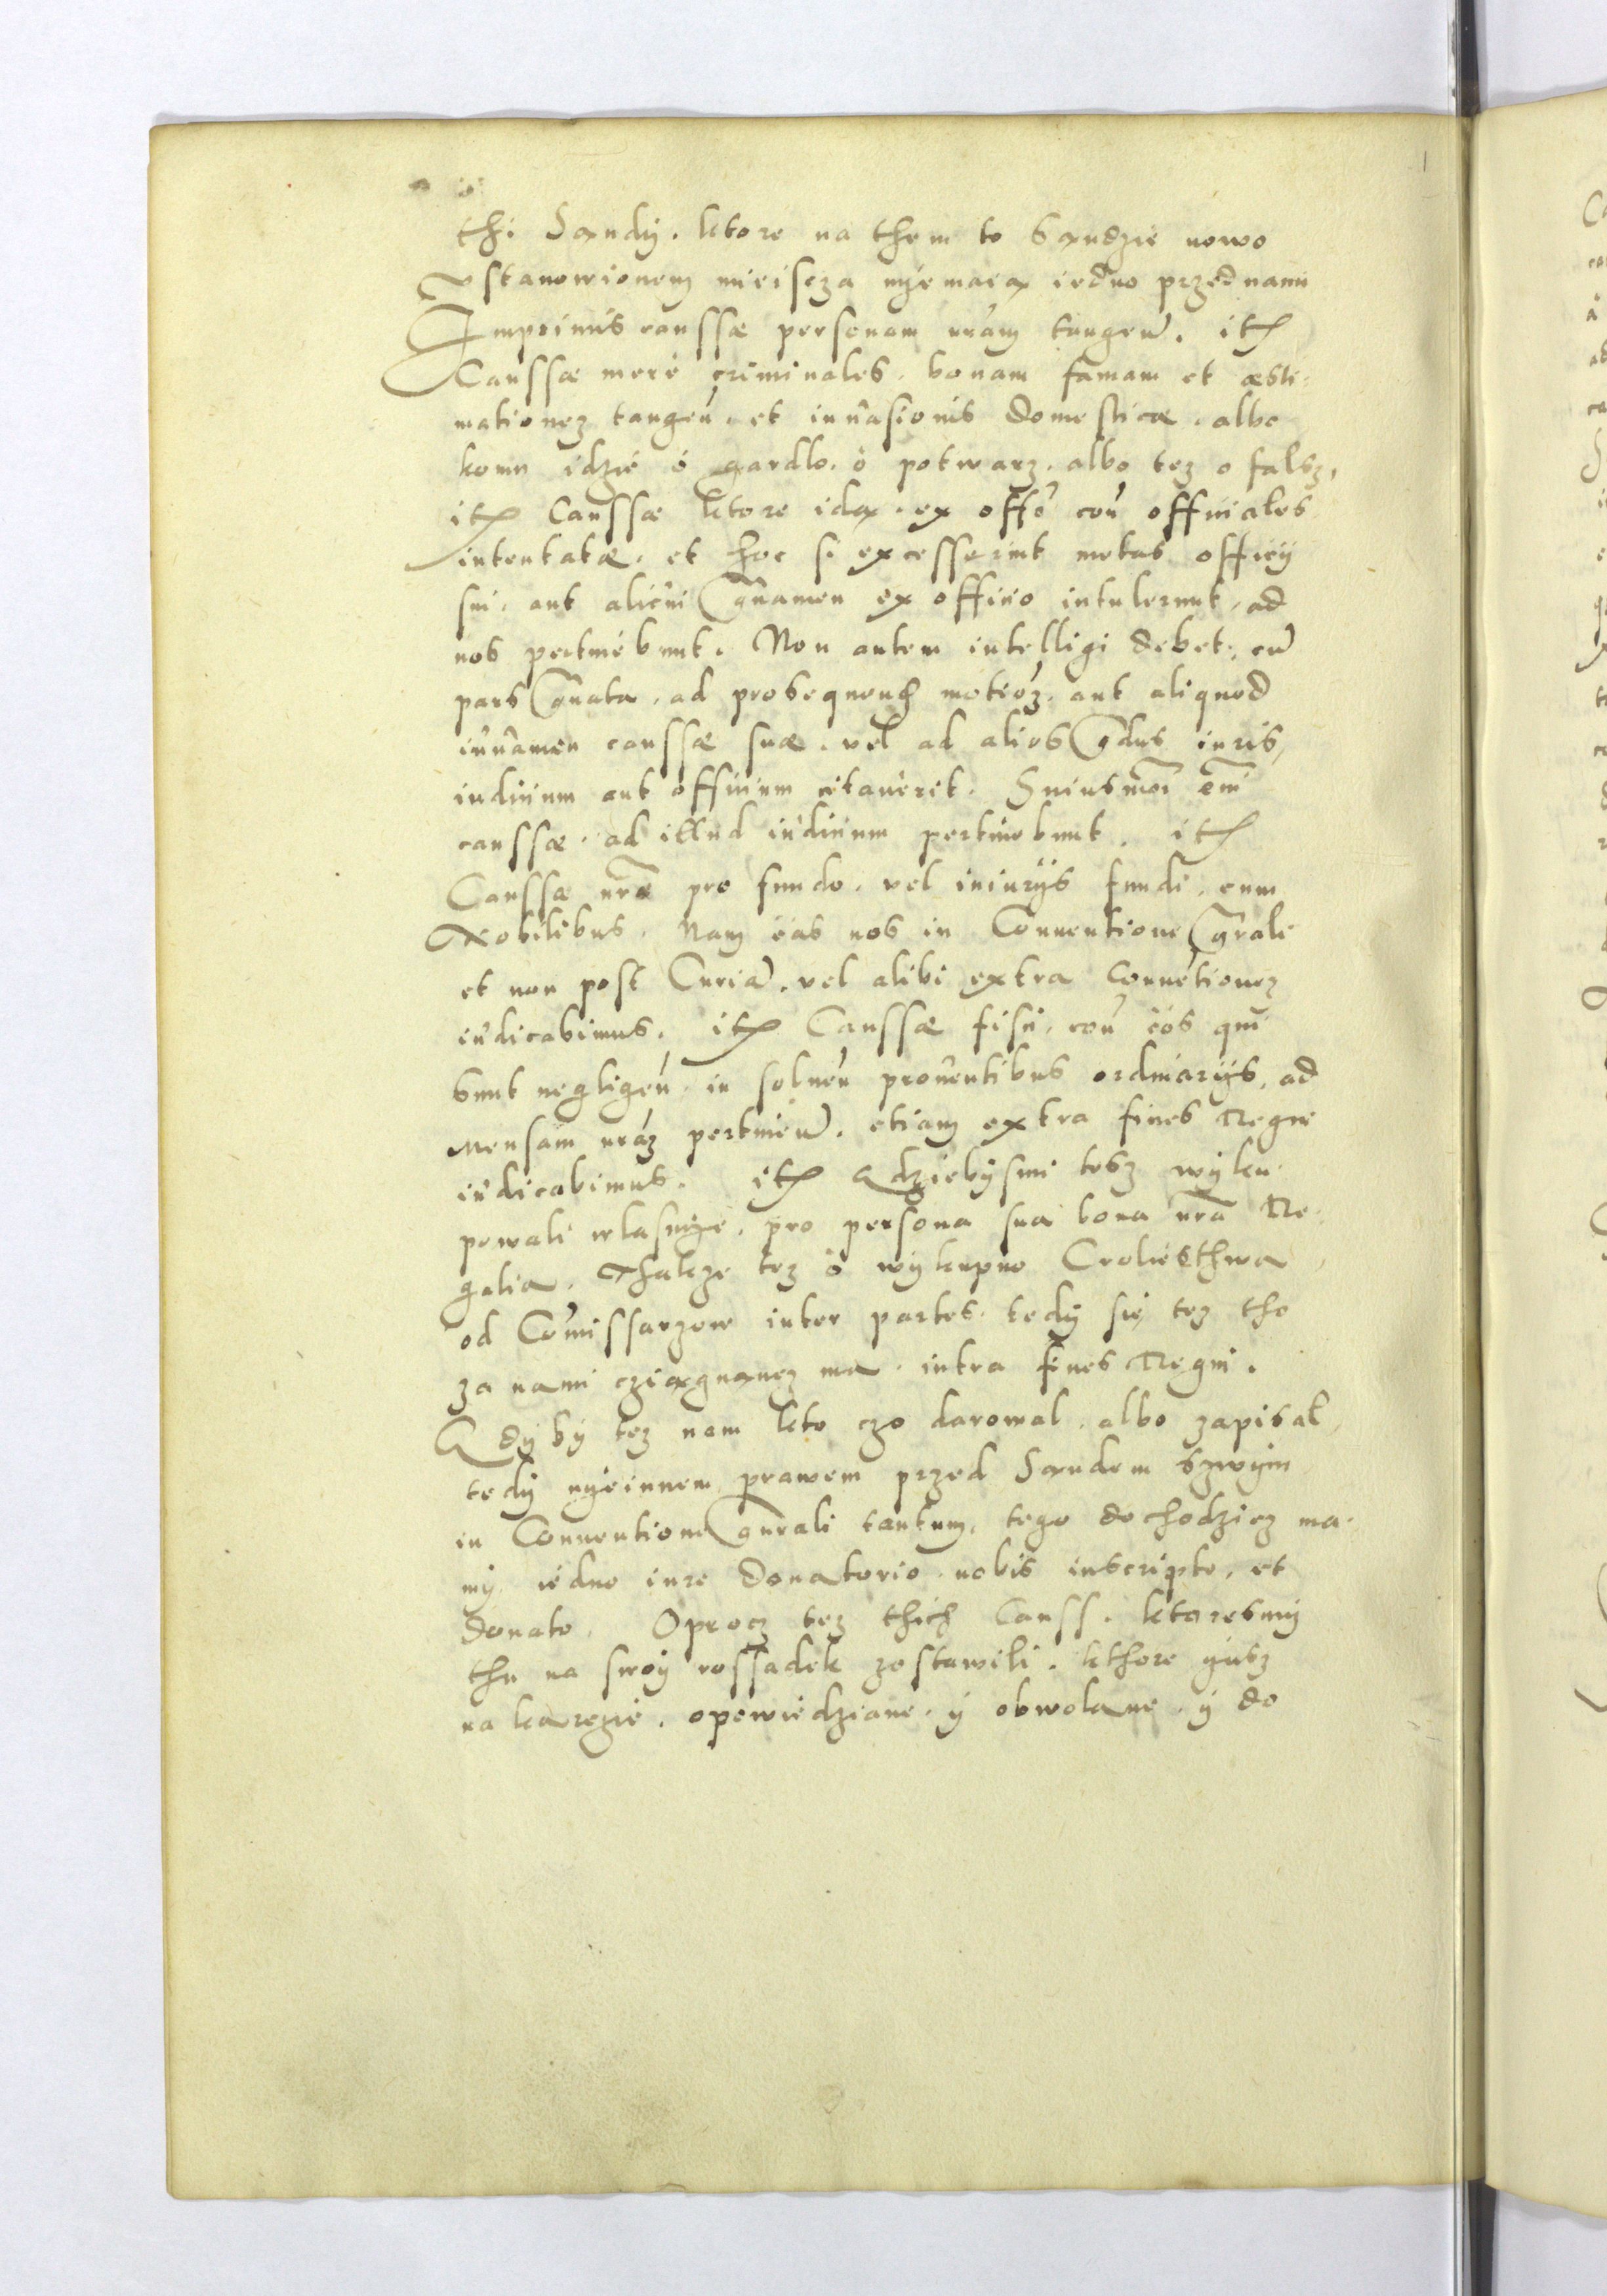 thi Sandÿ. ktore na them to Sandzie nowo
Vstanowionem mieiscza nÿemaią iedno przednami
Imprimis caussæ personam nrãm tangeñ. itē
Caussæ merè criminales. bonam famam et æsti-
mationez tangeñ. et inuasionis domesticæ. albo
komu idzie ó gardlo. o potwarz. albo tez o falsz,
itē Caussæ ktore idą. ex offõ coñ officiales
intentatæ. et hoc si excesserint metas officÿ
sui. aut alicui Grãuamen ex officio intulerunt, ad
nos pertinebunt. Non autem intelligi debet, cũ
pars Grãuata, ad prosequend motioz. aut aliquod
iuuamen caussæ suæ. vel ad alios Grãdus iuris,
iudicium aut officium citauerit. Huiusmõi eñi
caussæ. ad illud iudicium pertinebunt. itē
Caussæ nrãe pro fundo. vel iniurÿs fundi. cum
Nobilibus. Nam eas nos in Conuentione Gñrali
et non post Curiã. vel alibi extra Conuẽtionez
iudicabimus. itē Caussæ fisci. coñ eos qui
sunt negligeñ. in solueñ prouentibus ordinarÿs, ad
Mensam nrãz pertineñ. etiam extra fines Regni
iudicabimus. itē Gdziebÿsmi tesz wÿku-
powali wlasnÿe. pro persona sua bona nrã Re-
galia. Thakze tez o wÿkupno Croliesthwa
od Cõmissarzow inter partes. tedÿ się tez tho
za nami cziągnącz ma. intra fines Regni.
Gdÿ bÿ tez nam kto czo darowal. albo zapisał,
tedÿ nÿeinnem prawem przed Sandem Szwÿm
in Conuentione Gñrali tantum, tego dochodzicz ma-
mÿ. iedno iure Donatorio. nobis inscripto, et
donato. Oprocz tez thich Causs. ktoresmÿ
thu na swoÿ rossadek zostawili. kthore ÿusz
na karezie. opowiedziane. ÿ obwolane. ÿ do